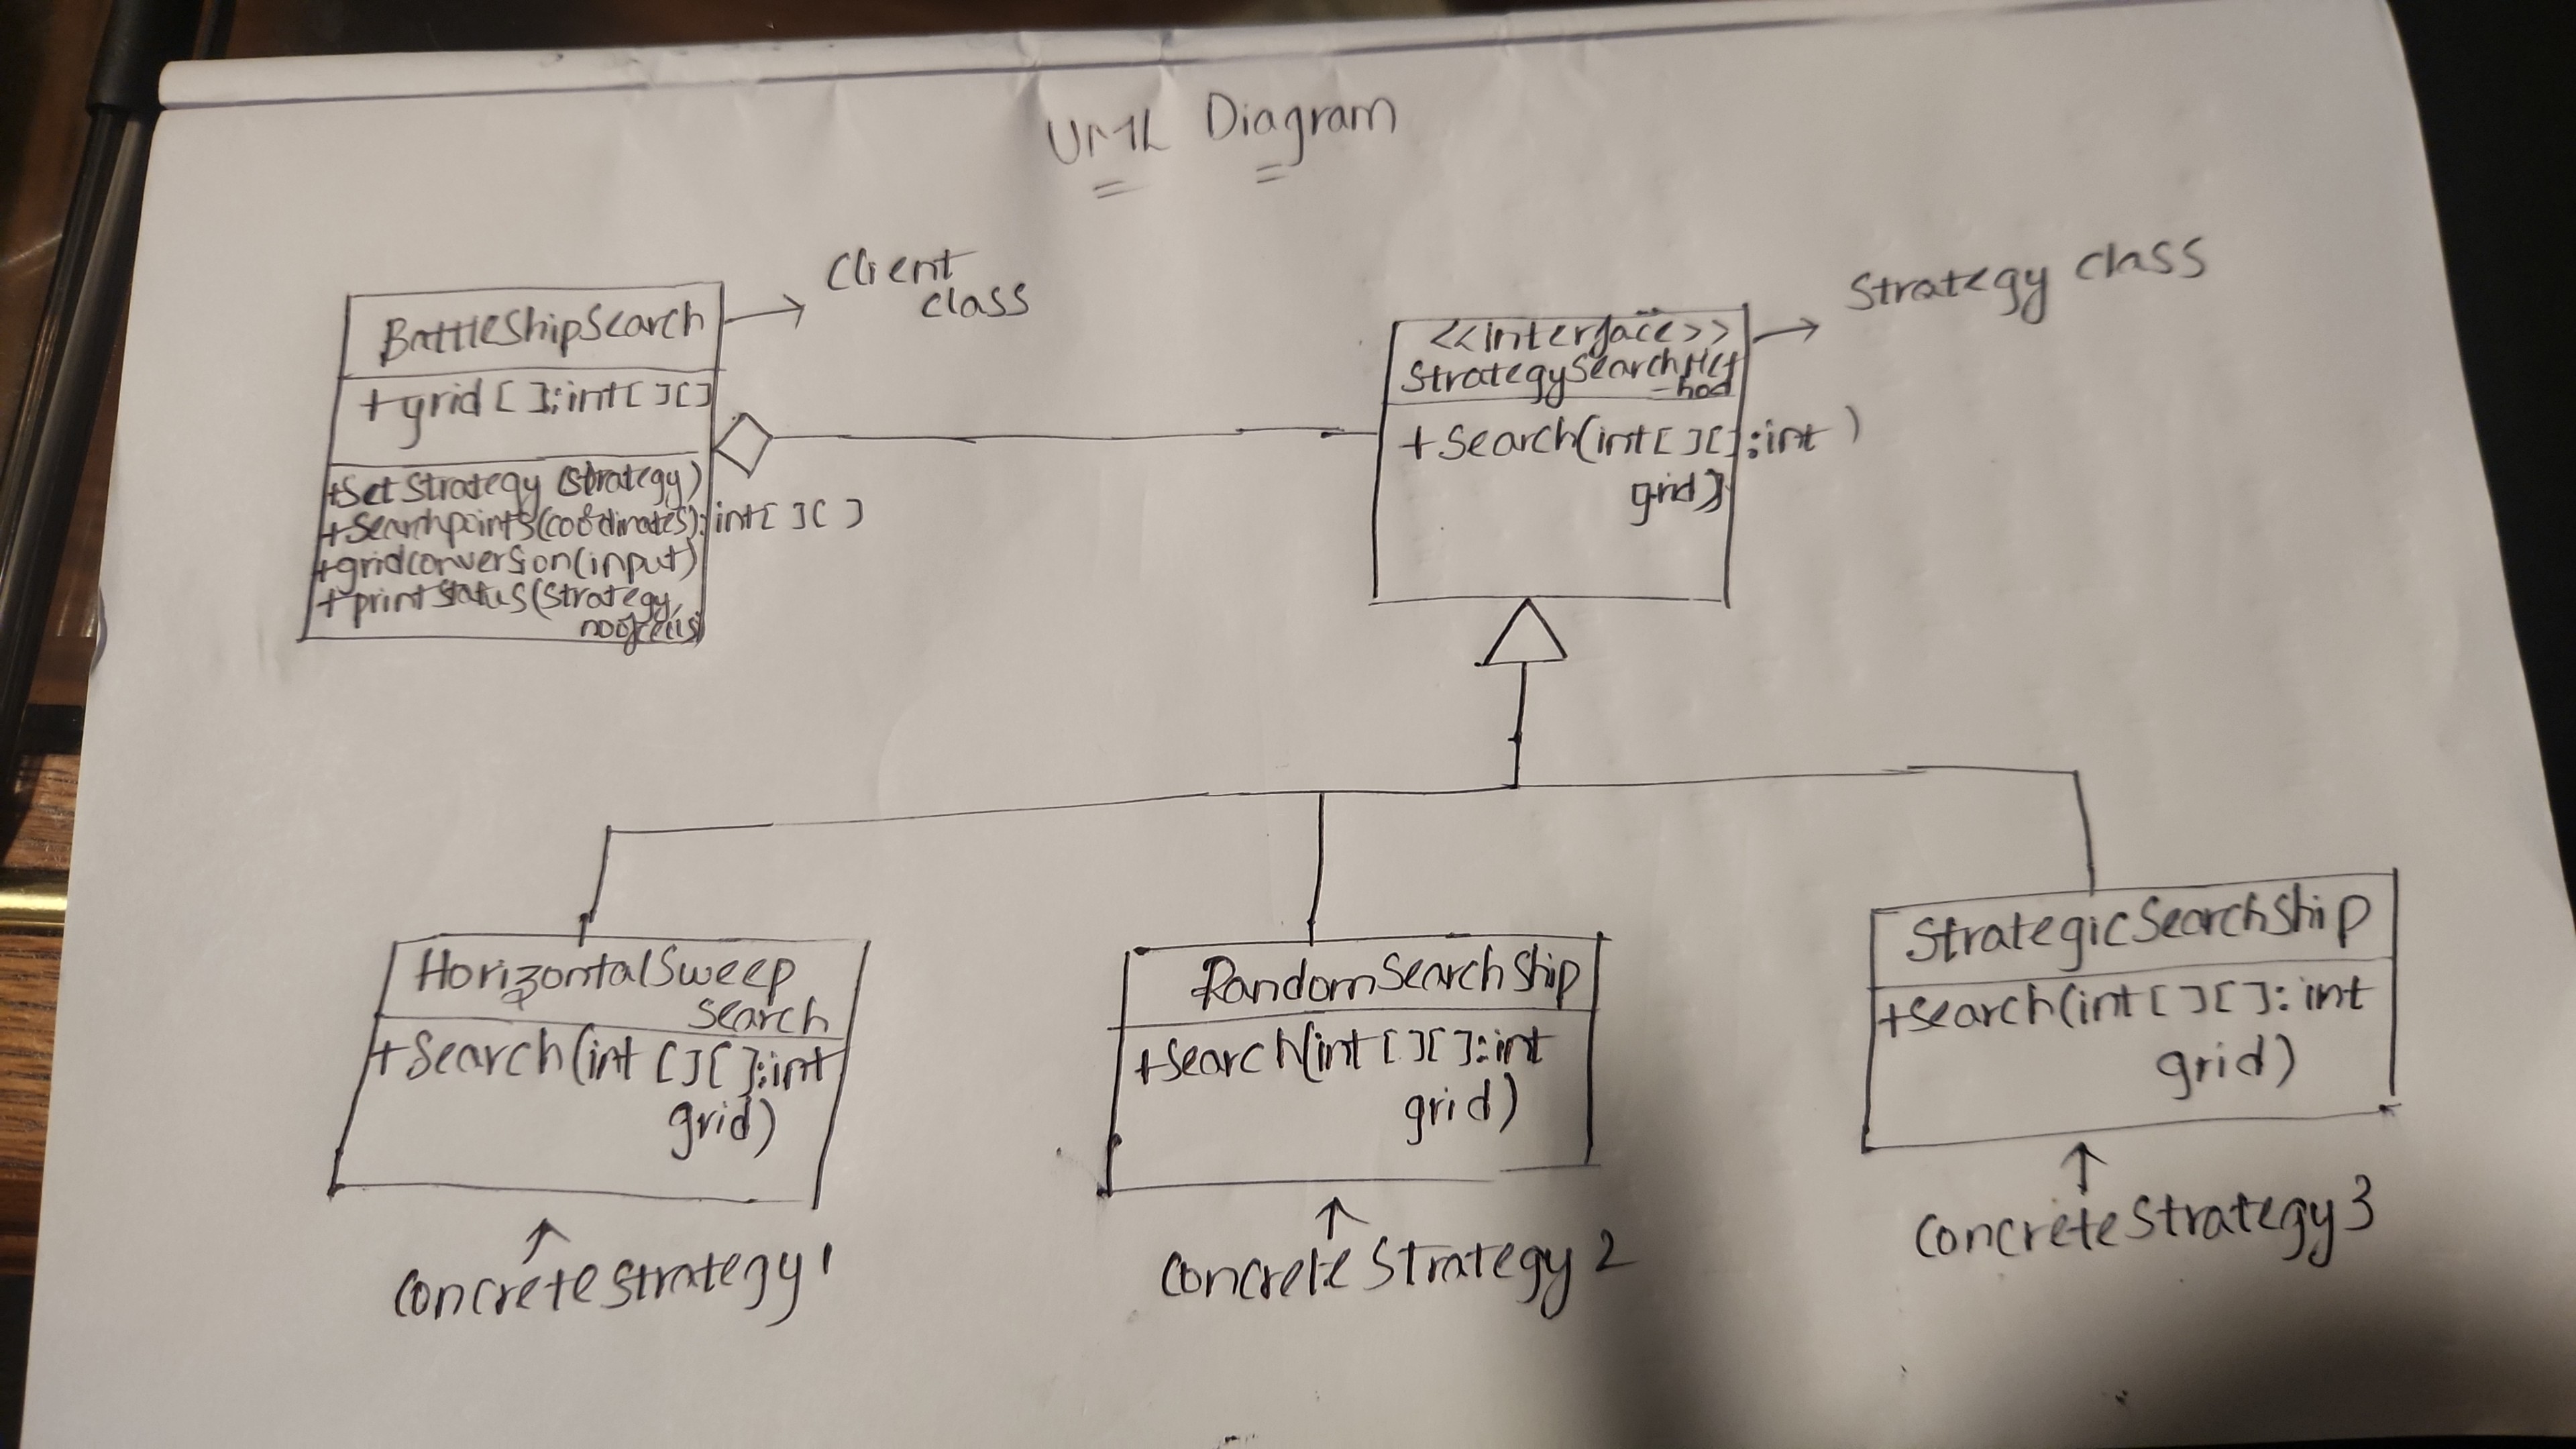 UML Diagram
BattleShipSearch
→ Client
class
+grid[]:int[][]
+SetStrategy(Strategy)
+Searchpoints(coordinates):int[][]
+gridconversion(input)
+printstatus(Strategy,
<<interface>>
StrategySearchMet
hod
→ Strategy class
+Search(int[][]:int)
grid)
HorizontalSweep
Search
+Search(int[][]:int
grid)
↑
Concrete Strategy 1
RandomSearchShip
+Search(int[][]:int
grid)
↑
Concrete Strategy 2
StrategicSearchShip
+Search(int[][]:int
grid)
↑
Concrete Strategy 3